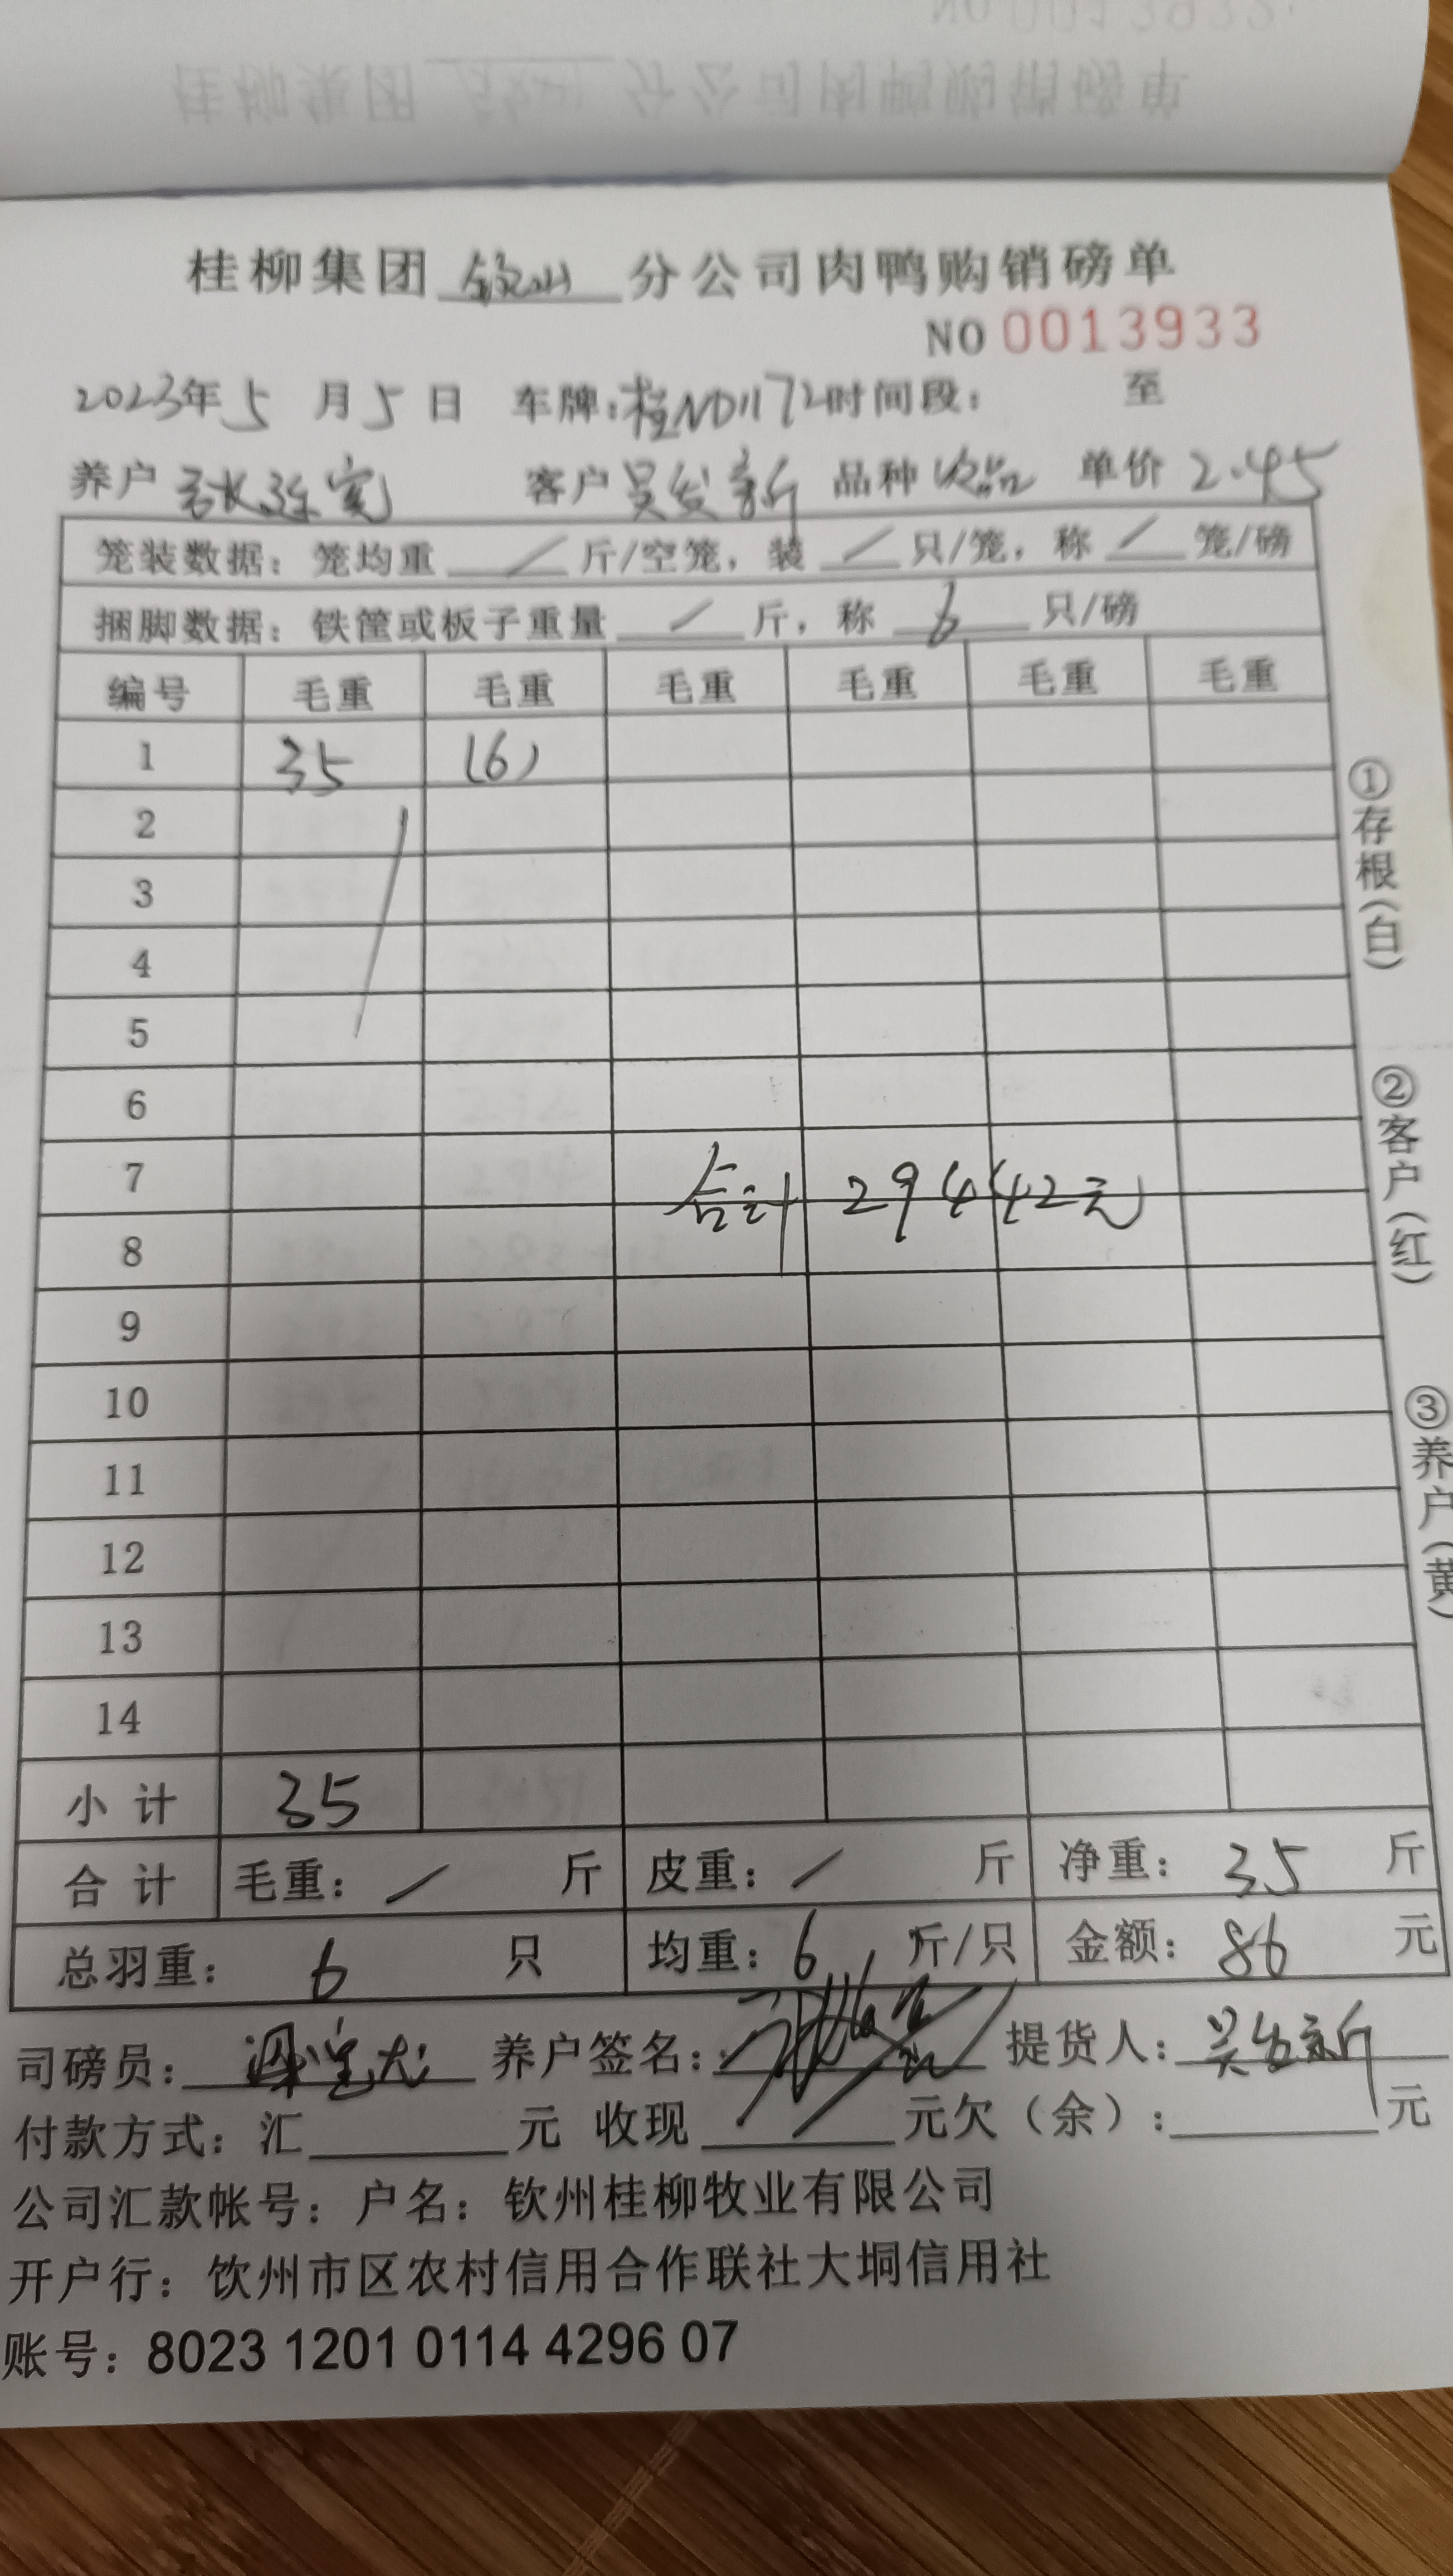 桂柳集团 钦州 分公司肉鸭购销磅单
NO 0013933
2023年5月5日 车牌:桂ND1172时间段: 至
养户 客户 吴发新 品种 次品 单价 2.45
笼装数据: 笼均重 / 斤/空笼, 装 / 只/笼, 称 / 笼/磅
捆脚数据: 铁筐或板子重量 / 斤, 称 6 只/磅
编号 毛重 毛重 毛重 毛重 毛重 毛重
1 35 (6)
2
3
4
5
6
7
合计 29442元
8
9
10
11
12
13
14
小计 35
合计 毛重: / 斤 皮重: / 斤 净重: 35 斤
总羽重: 6 只 均重: 6 斤/只 金额: 86 元
司磅员: 养户签名: 提货人: 吴发新
付款方式: 汇 元 收现 元欠(余): 元
公司汇款帐号: 户名: 钦州桂柳牧业有限公司
开户行: 饮州市区农村信用合作联社大垌信用社
账号: 8023 1201 0114 4296 07
①存根(白)
②客户(红)
③养户(黄)